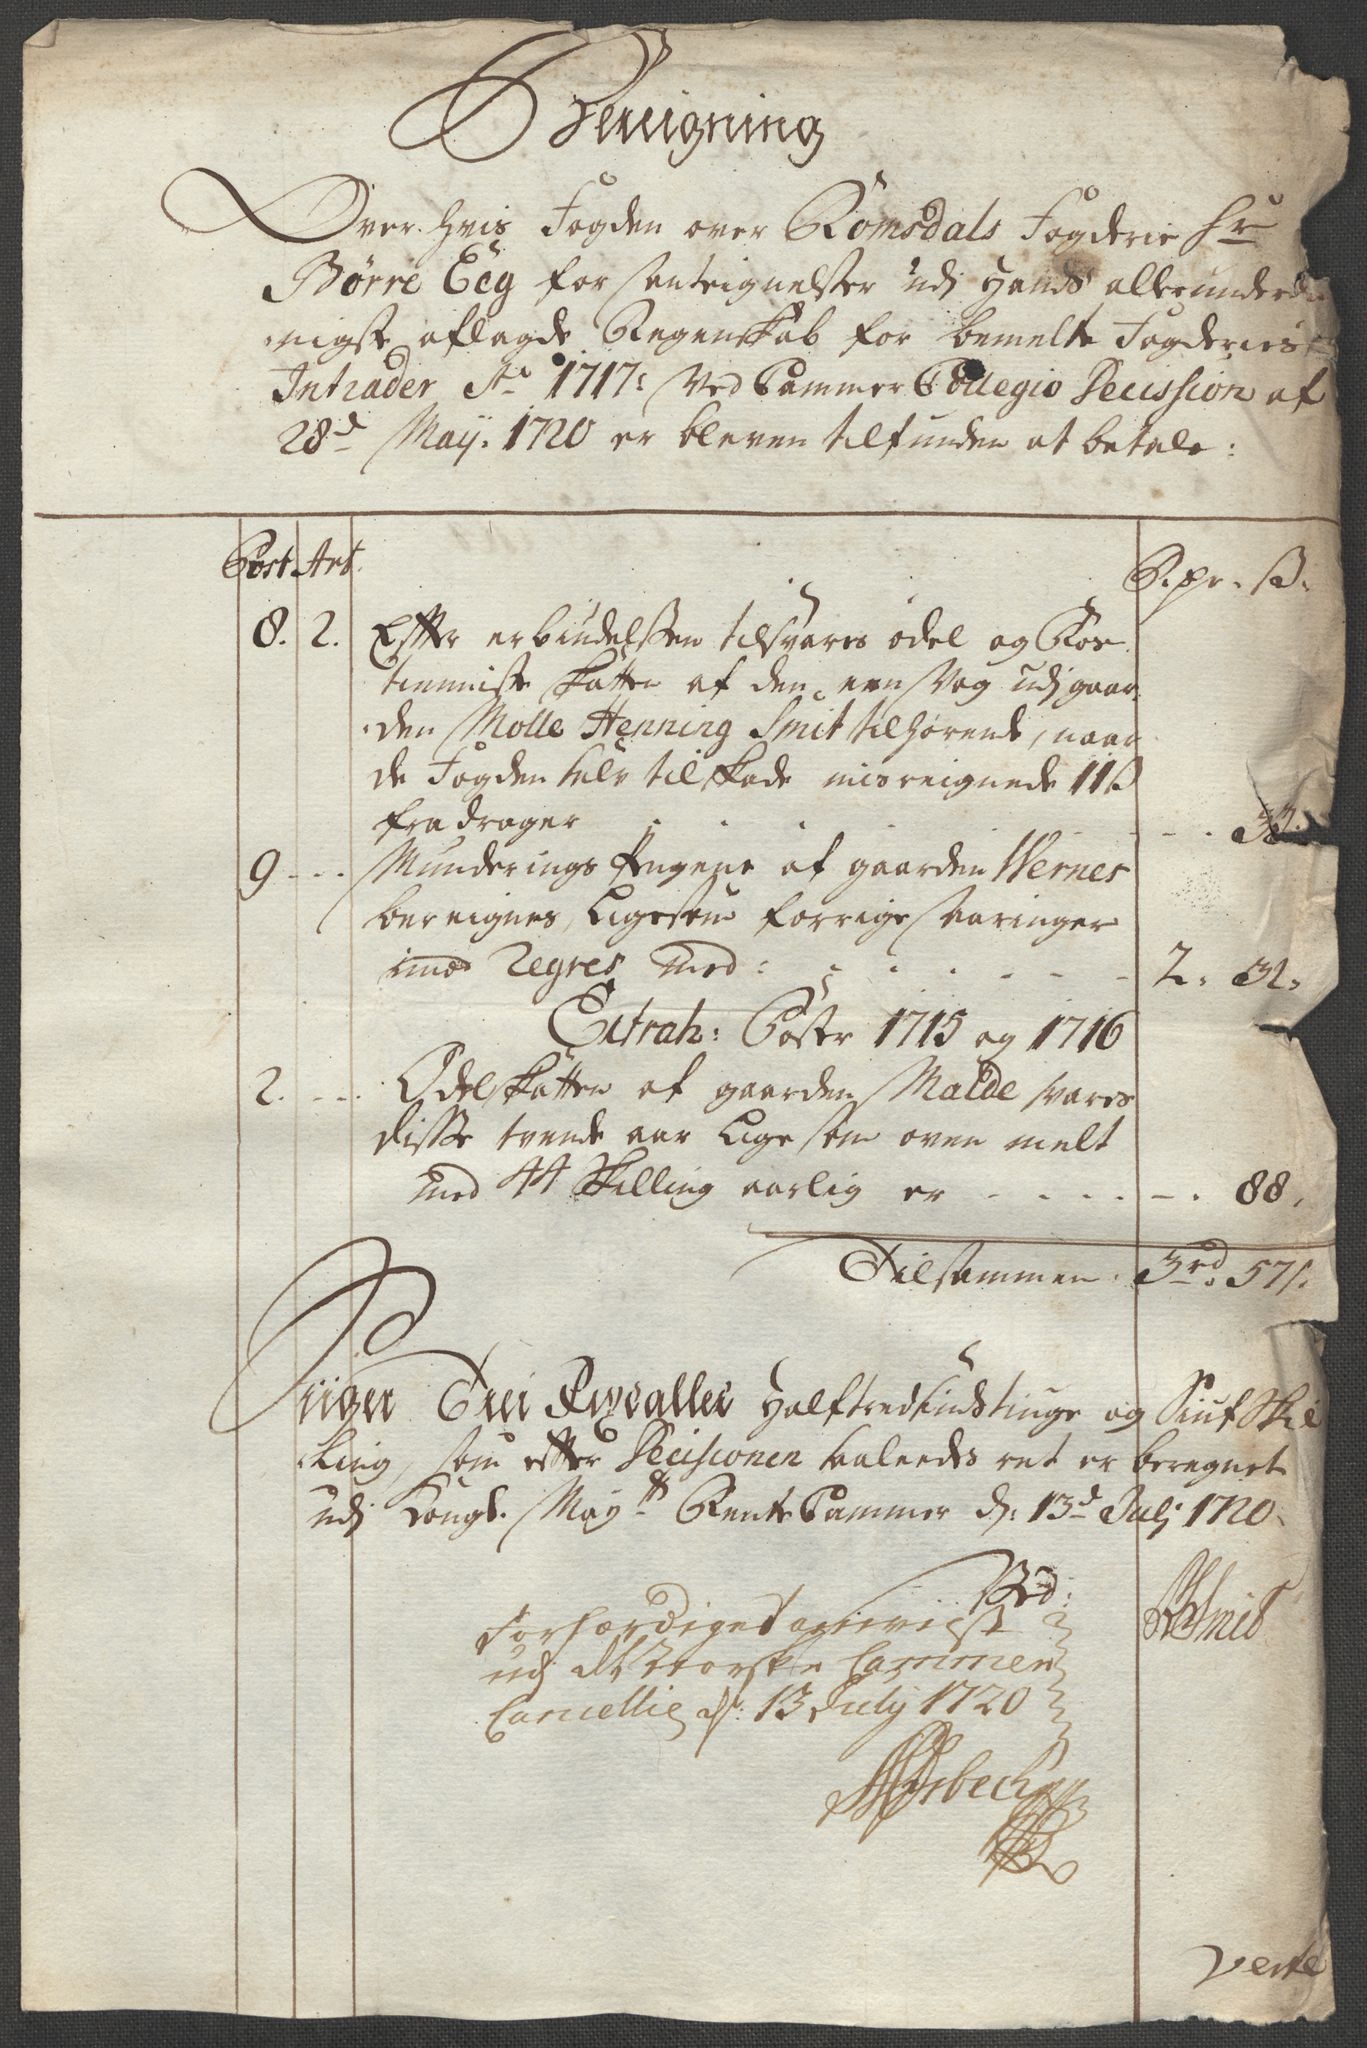 Bereigning
Over hvis Fogden over Romsdals Fogderie Hr
Børre Eeg for Anteignelser udj Hands allerunderdā
nigst aflagde Regenskab for bemelte Fogderies
Intrader Ao 1717: Ved Cammer Collegio Decission af
28d Maij. 1720 er bleven tilfunden at betale:
Post Art. Rdr. ß.
8. 2. Efter erbiudelssen tilsvares odel og Ros
tienniste skatten af den een Vog udj gaar
den Molle Henning Smit tilhørende, naar
de Fogden selv til skade misreignede 11 ß
fradrager
9 - - . Munderings Pengene af gaarden Wernes
bereignes, Ligesom forrige aaringer
imod Regres med: 2. 32.
Extrah: Poster 1715 og 1716
2. - - . Odelskatten af gaarden Malde svares
disse tvende aar Lige som oven melt
med 44 skilling aarlig er - - - - - 88.
Tilsammen. 3rd. 57ß.
Siiger Trei Rixdaller Halftredsindstiuge og Siuf Skil
ling, som efter Decisionen saaledes ret er beregnet
udj Kongl. Mayts Rente Cammer d: 13d Julj 1720.
Forfærdiget 
udj det Norske Cammer
Cancellie d: 13 July 1720
Smid
Verte